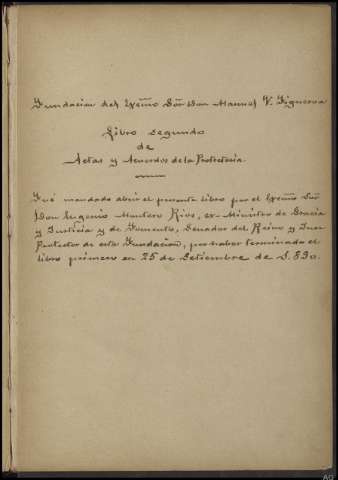 Fundación del Excmo Sñr Don Manuel V. Figueroa
Libro segundo
de
Actas y Acuerdos de la Protectoria.
Fué mandado abrir el presente libro por el Excmo Sñr
Don Eugenio Montero Ríos, ex-Ministro de Gracia
y Justicia y de Fomento, Senador del Reino y Juez
Protector de esta Fundación, por haber terminado el
libro primero en 25 de Setiembre de 1.890.
AG